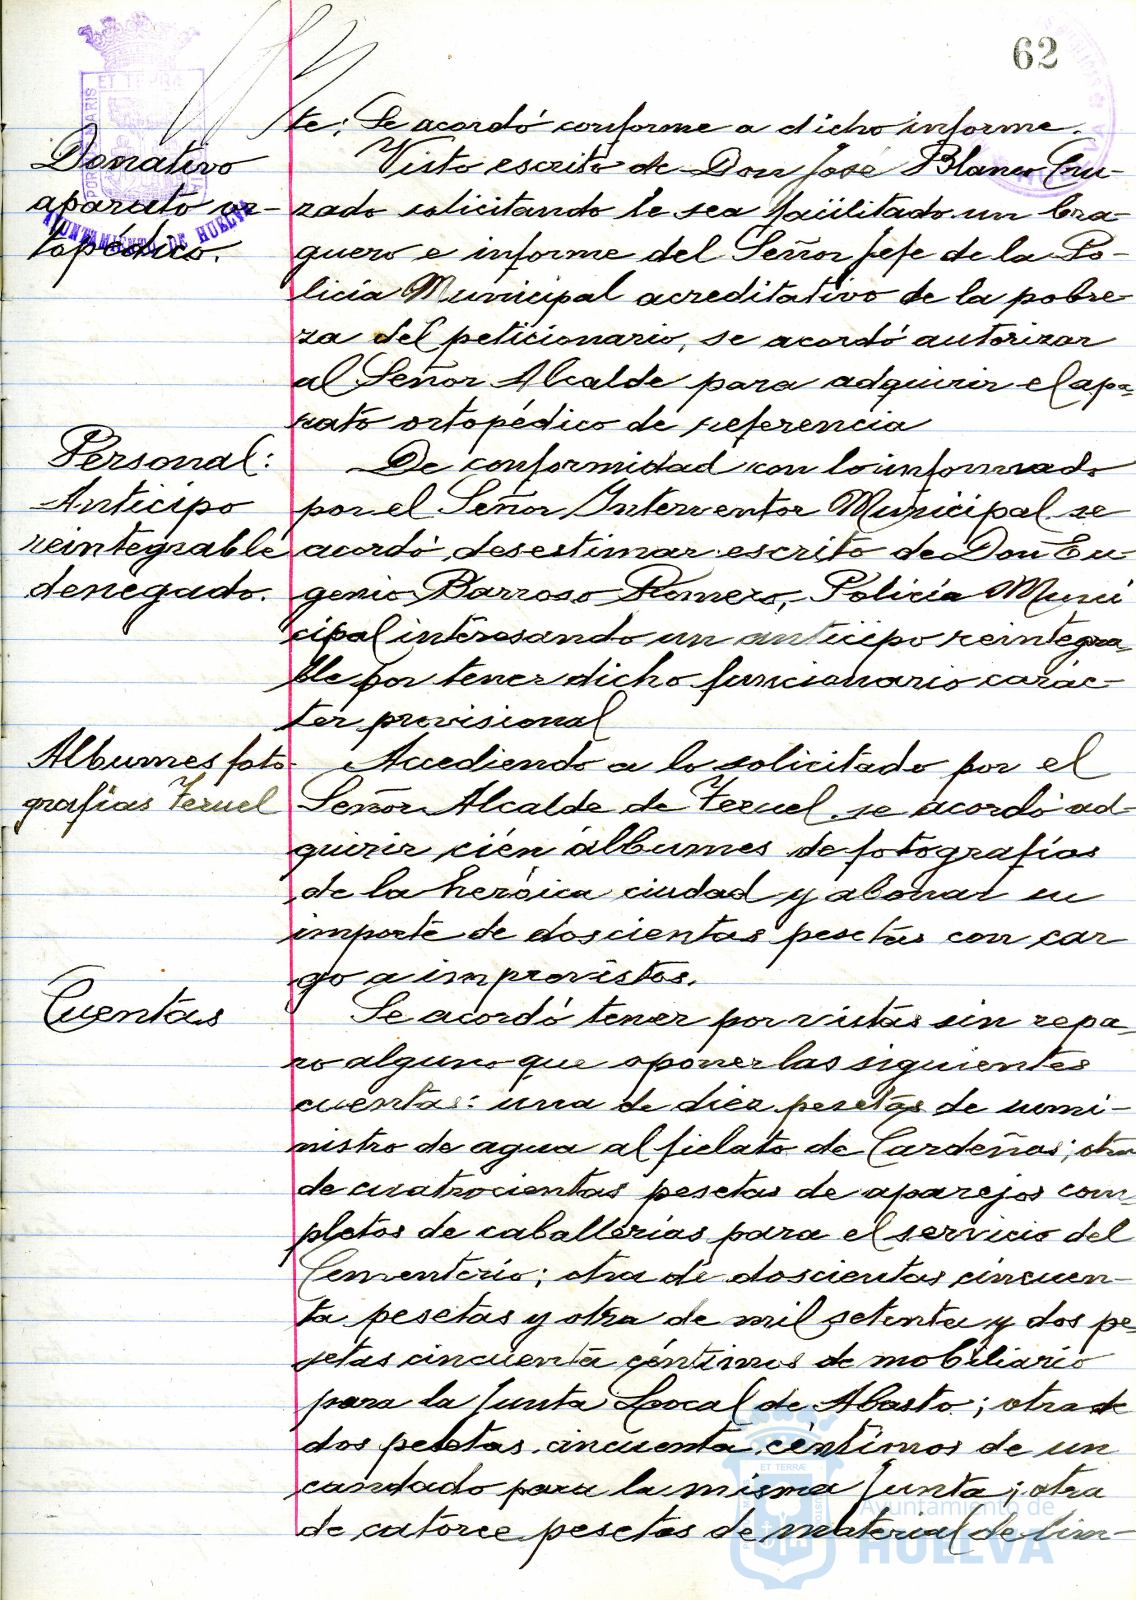 62
te; Se acordó conforme a dicho informe.
Donativo
aparato or-
topédico.
Visto escrito de Don José Blanco Cru-
zado solicitando le sea facilitado un bra-
guero e informe del Señor Jefe de la Po-
licia Municipal acreditativo de la pobre-
za del peticionario, se acordó autorizar
al Señor Alcalde para adquirir el apa-
rato ortopédico de referencia
Personal:
Anticipo
reintegrable
denegado.
De conformidad con lo informado
por el Señor Interventor Municipal se
acordó desestimar escrito de Don Eu-
genio Barroso Romero, Policia Muni
cipal interesando un anticipo reintegra
ble por tener dicho funcionario carac-
ter provisional
Albumes foto
grafias Teruel
Accediendo a lo solicitado por el
Señor Alcalde de Teruel se acordó ad-
quirir cien álbumes de fotografías
de la heróica ciudad y abonar su
importe de doscientas pesetas con car
go a imprevistos.
Cuentas
Se acordó tener por vistas sin repa-
ro alguno que oponer las siguientes
cuentas: una de diez pesetas de sumi-
nistro de agua al fielato de Cardeñas; otra
de cuatrocientas pesetas de aparejos com-
pletos de caballerías para el servicio del
Cementerio; otra de doscientas cincuen-
ta pesetas y otra de mil setenta y dos pe-
setas cincuenta céntimos de mobiliario
para la Junta Local de Abasto; otra de
dos pesetas cincuenta céntimos de un
candado para la misma Junta; otra
de catorce pesetas de material de lim-
AYUNTAMIENTO DE HUELVA
Ayuntamiento de
HUELVA